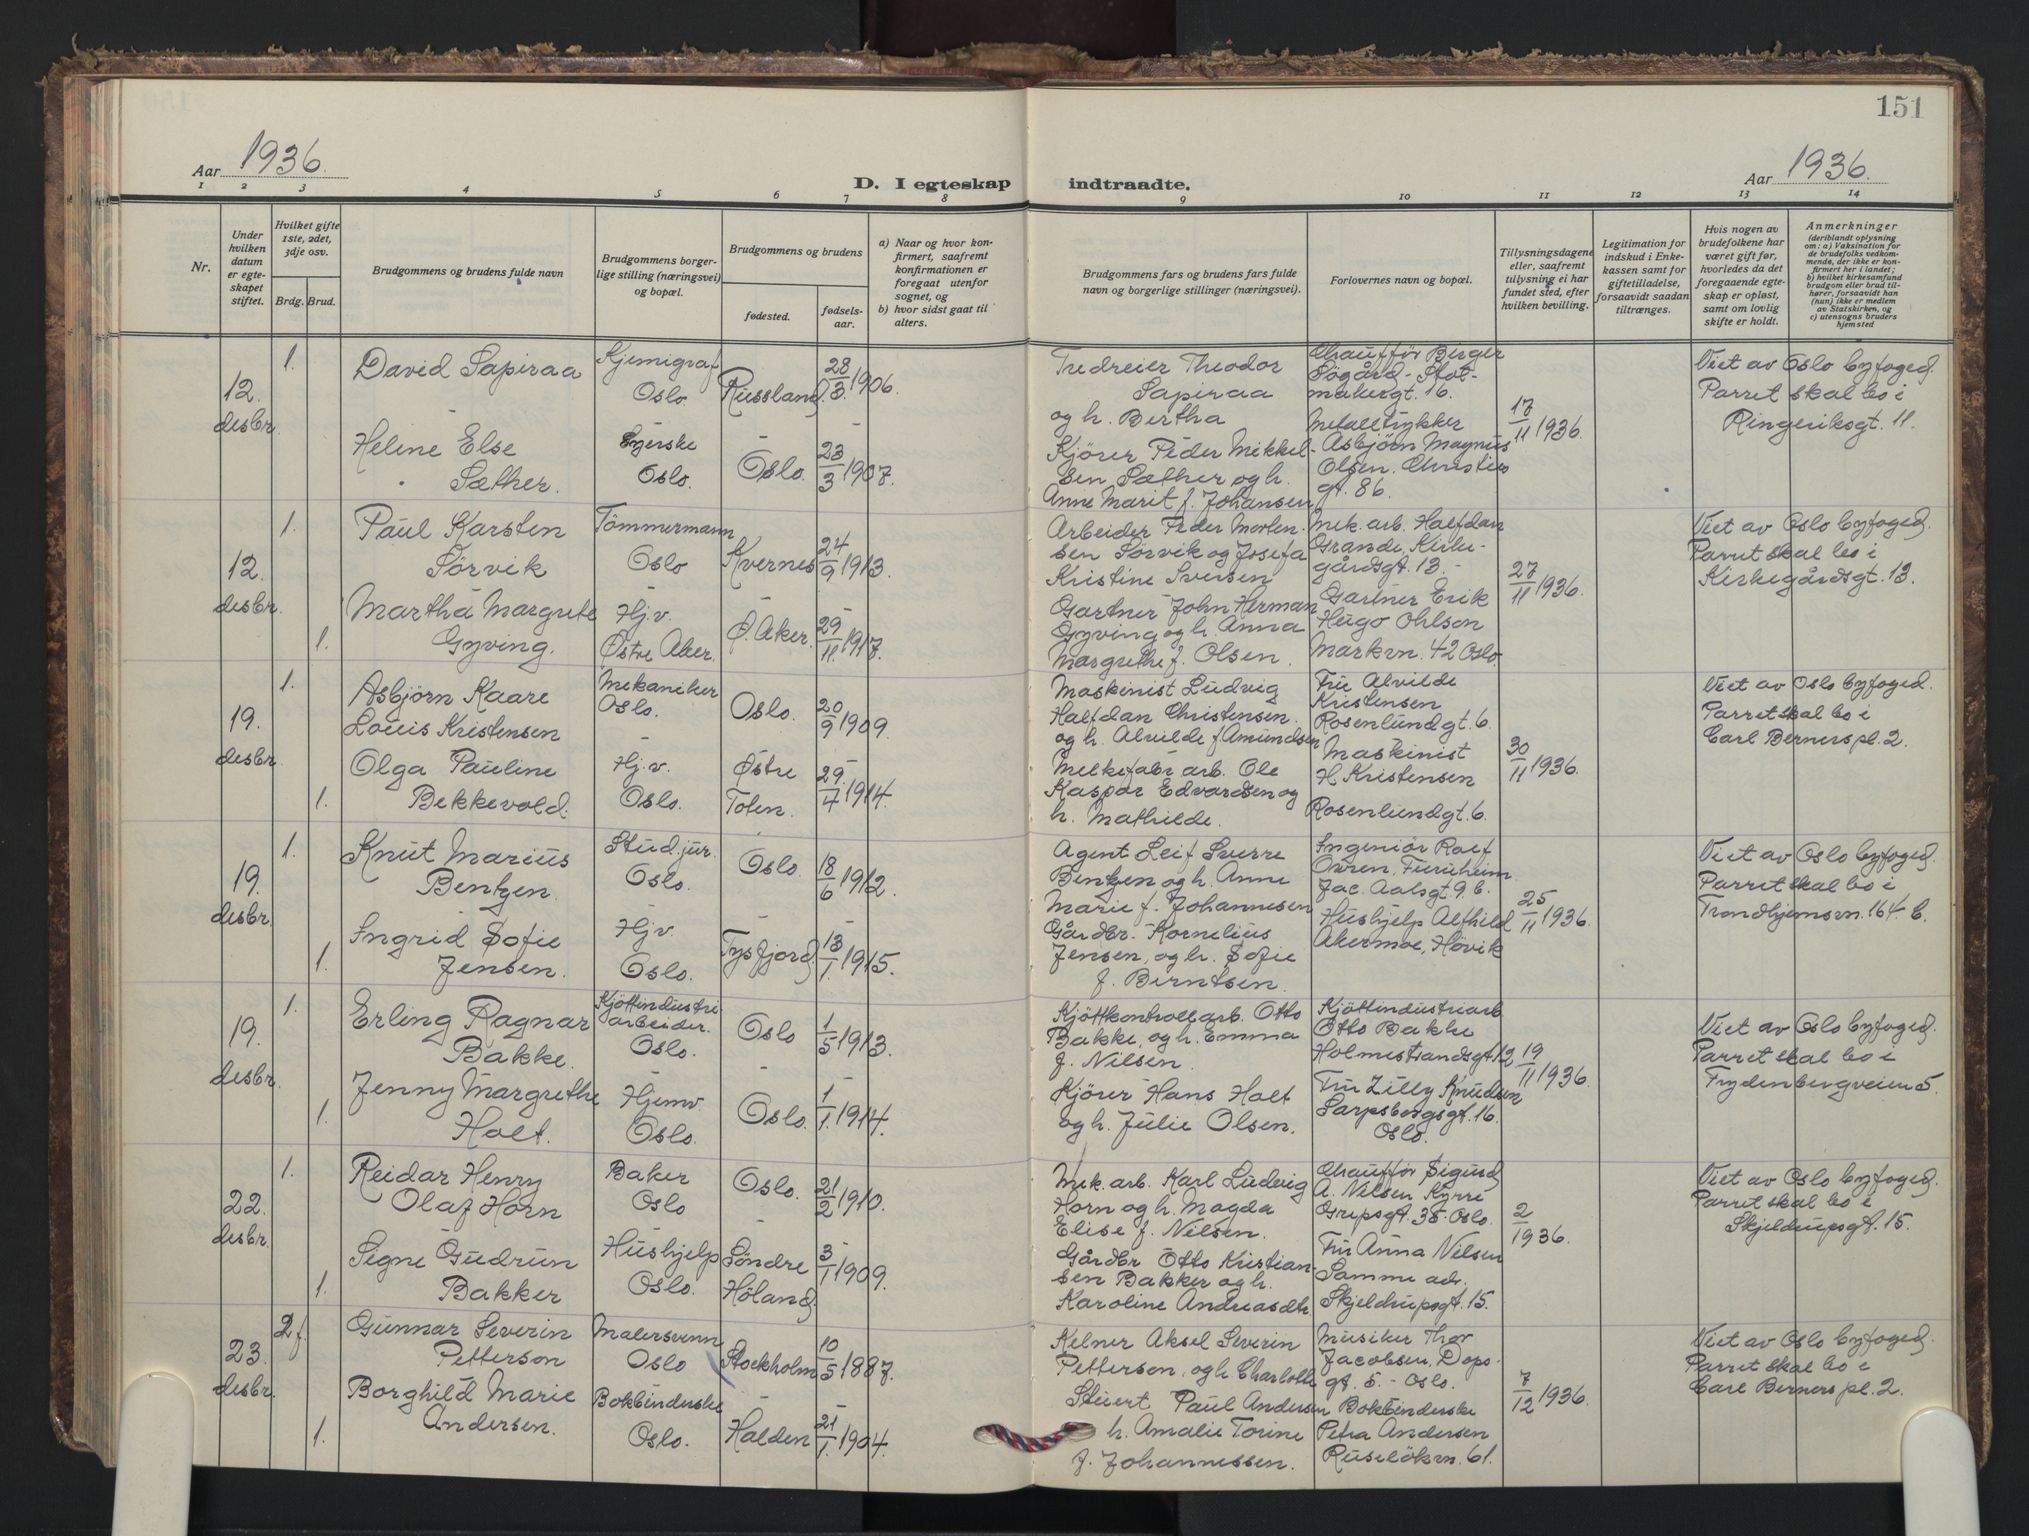 151
Aar 1936.
D. I egteskap indtraadte.
Aar 1936.
1 2 3 4 5 6 7 8 9 10 11 12 13 14
Nr.
Under hvilken datum er egteskapet stiftet.
Hvilket gifte 1ste, 2det, 3dje osv.
Brdg. Brud.
Brudgommens og brudens fulde navn
Brudgommens borgerlige stilling (næringsvei) og bopæl.
Brudgommens og brudens
fødested.
fødselsaar.
a) Naar og hvor konfirmert, saafremt konfirmationen er foregaat utenfor sognet, og
b) hvor sidst gaat til alters.
Brudgommens fars og brudens fars fulde navn og borgerlige stillinger (næringsvei).
Forlovernes navn og bopæl.
Tillysningsdagene eller, saafremt tillysning ei har fundet sted, efter hvilken bevilling.
Legitimation for indskud i Enkekassen samt for giftetilladelse, forsaavidt saadan tiltrænges.
Hvis nogen av brudefolkene har været gift før, hvorledes da det foregaaende egteskap er opløst, samt om lovlig skifte er holdt.
Anmerkninger
(deriblandt oplysning om: a) Vaksination for de brudefolks vedkommende, der ikke er konfirmert her i landet; b) hvilket kirkesamfund brudgom eller brud tilhører, forsaavidt han (hun) ikke er medlem av Statskirken, og c) utensogns bruders hjemsted
12. desbr.
1.
David Sapiraa
Kjemigraf
Oslo
Russland
28/3 1906.
Helene Else
Sæther.
Syerske
Oslo.
Oslo.
23/3 1907.
Tredreier Theodor
Sapiraa
og h. Bertha
Kjörer Peder Mikkel-
sen Sæther og h.
Anne Marit f. Johansen
Chauffør Birger
Søgård - Slot-
makergt. 16.
Metalltrykker
Asbjørn Magnus
Olsen. Christies
gt. 86.
17/11 1936.
Viet av Oslo byfoged.
Parret skal bo i
Ringeriksgt. 11.
12. desbr.
1.
Paul Karsten
Sørvik
Tömmermann
Oslo
Kvernes
24/9 1913.
1.
Martha Margrete
Gyving.
Hj.v.
Østre Aker.
Ø. Aker.
29/11. 1917.
Arbeider Peder Morten-
sen Sørvik og Josefa
Kristine Iversen
Gartner John Herman
Gyving og h. Anna
Margrethe f. Olsen.
Mek. arb. Halfdan
Grande, Kirke-
gårdsgt. 13.
Gartner Erik
Hugo Ohlson
Markvn. 42 Oslo.
27/11 1936.
Viet av Oslo byfoged.
Parret skal bo i
Kirkegårdsgt. 13.
19. desbr.
1.
Asbjørn Kaare
Louis Kristensen
Mekaniker
Oslo.
Oslo.
20/9 1909.
1.
Olga Pauline
Bekkevold.
Hj.v.
Oslo.
Østre
Toten.
29/4 1914.
Maskinist Ludvig
Halfdan Christensen.
og h. Alvilde f Amundsen
Melkefabr arb. Ole
Kaspar Edvardsen og
h. Mathilde.
Fru Alvilde
Kristensen
Rosenlundgt. 6
Maskinist
H. Kristensen
Rosenlundgt. 6.
30/11 1936.
Viet av Oslo byfoged.
Parret skal bo i
Carl Berners pl. 2.
19. desbr.
1.
Knut Marius
Bentzen.
Stud. jur.
Oslo.
Oslo.
18/6 1912.
1.
Ingrid Sofie
Jensen.
Hjv.
Oslo.
Tysfjord.
13/1 1915.
Agent Leif Sverre
Bentzen og h. Anne
Marie f. Johannesen
Gårdbr. Kornelius
Jensen, og h. Sofie
f. Berntsen.
Ingeniør Rolf
Ovren, Furuheim
Jac. Aalsgt. 9 b.
Hushjelp Alfhild
Akermoe, Høvik
25/11 1936.
Viet av Oslo byfoged.
Parret skal bo i
Trondhjemsvn. 164 b.
19. desbr.
1.
Erling Ragnar
Bakke.
Kjöttindustri
arbeider.
Oslo.
Oslo
1/5 1913.
1.
Jenny Margrethe
Holt.
Hjemv.
Oslo.
Oslo.
1/1. 1914.
Kjöttkontrollarb. Otto
Bakke, og h. Emma
f. Nilsen.
Kjörer Hans Holt
og h. Julie Olsen.
Kjöttindustriarb.
Otto Bakke
Holmestrandsgt. 12
Fru Zilly Knudsen
Sarpsborgsgt. 16.
Oslo.
19/11 1936.
Viet av Oslo byfoged.
Parret skal bo i
Frydenbergveien 5.
22. desbr.
1.
Reidar Henry
Olaf Horn
Baker
Oslo
Oslo.
21/2 1910.
1.
Signe Gudrun
Bakker
Hushjelp
Oslo.
Søndre
Høland.
3/1 1909.
Mek. arb. Karl Ludvig
Horn og h. Magda
Elise f. Nilsen.
Gårdbr Otto Kristian-
sen Bakker og h.
Karoline Andreasdtr.
Chauffør Sigurd
A. Nilsen Kyrre
Grepsgt. 35. Oslo.
Fru Anna Nilsen
Samme adr.
Skjeldrupsgt. 15.
2/1936.
Viet av Oslo byfoged.
Parret skal bo i
Skjeldrupsgt. 15.
23. desbr.
2 f.
Gunnar Severin
Petterson
Malersvenn
Oslo
Stockholm
10/5 1887.
1.
Borghild Marie
Andersen.
Bokbinderske
Oslo.
Halden
21/1. 1904.
Kelner Aksel Severin
Petterson, og h. Charlotte
Steiert Paul Andersen
h. Amalie Torine
f. Johannessen.
Musiker Thor
Jacobsen, Dops-
gt. 5. - Oslo.
Bokbinderske
Petra Andersen
Ruselökvn. 61.
7/12 1936.
Viet av Oslo byfoged.
Parret skal bo i
Carl Berners pl. 2.